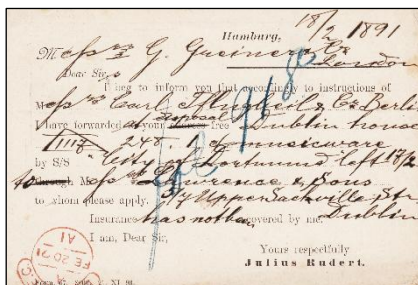 Hamburg, 18/2 1891
Messrs G. Greiner & Co
London
Dear Sir,
I beg to inform you that accordingly to instructions of
Messrs Carl & Co Berlin
I have forwarded at your disposal free Dublin
245 1 c
by S/S "City of Dortmund" left 17/2
to through Messrs Lawrence & Sons
to whom please apply. 5/7 Upper Sackville Str
Insurance has not been covered by me. Dublin
I am, Dear Sir,
Yours respectfully
Julius Rudert.
A1
FE 20 91
XI 90.